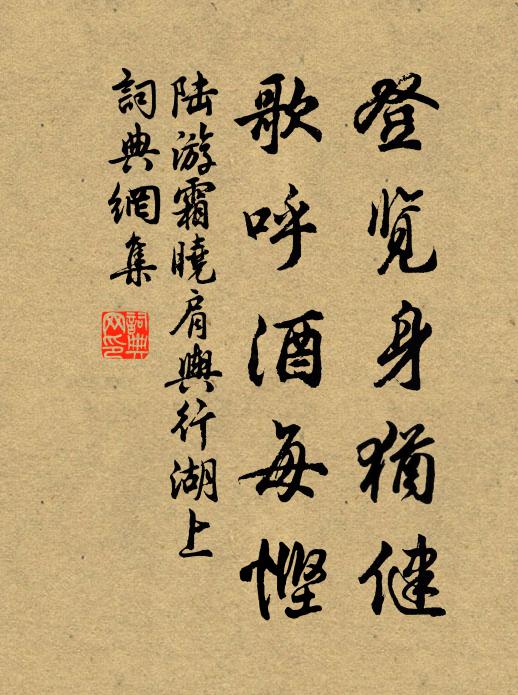 登览身犹健
歌呼酒每悭
陆游霜曉肩輿行湖上
詞典網集
詞典
网印